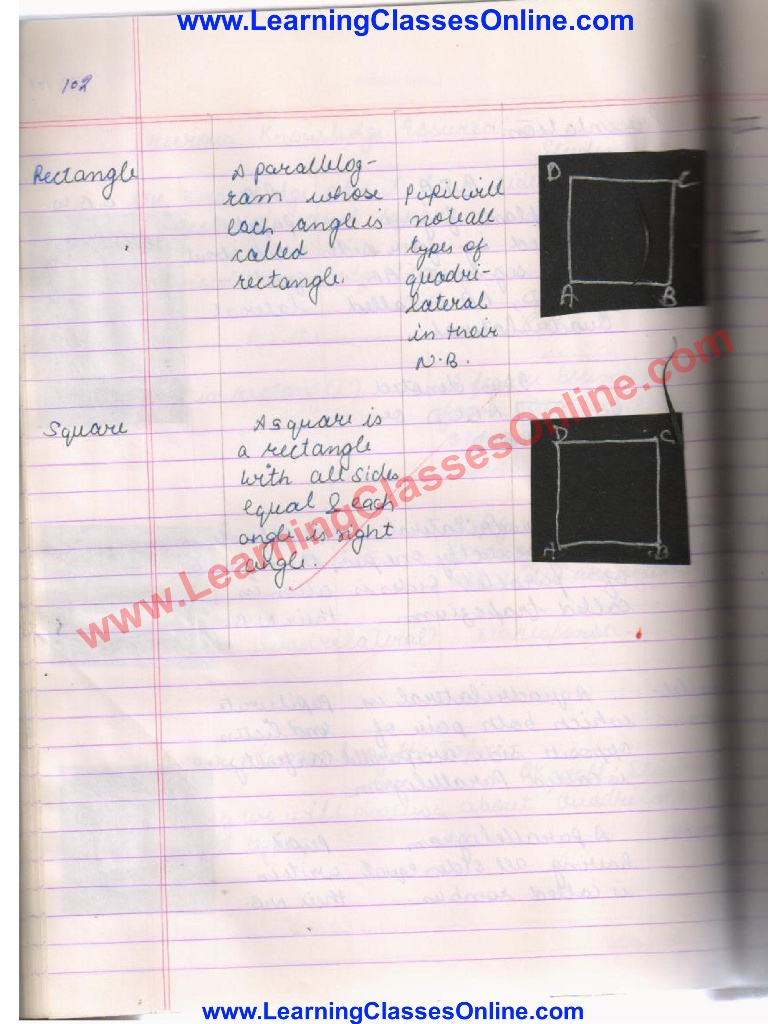 www.LearningClassesOnline.com
102
Rectangle
A parallelog-
ram whose
each angle is
called
rectangle.
Pupil will
note all
types of
quadri-
lateral
in their
N.B.
D C
A B
Square
A square is
a rectangle
with all sides
equal & each
angle is right
angle.
D C
A B
www.LearningClassesOnline.com
www.LearningClassesOnline.com